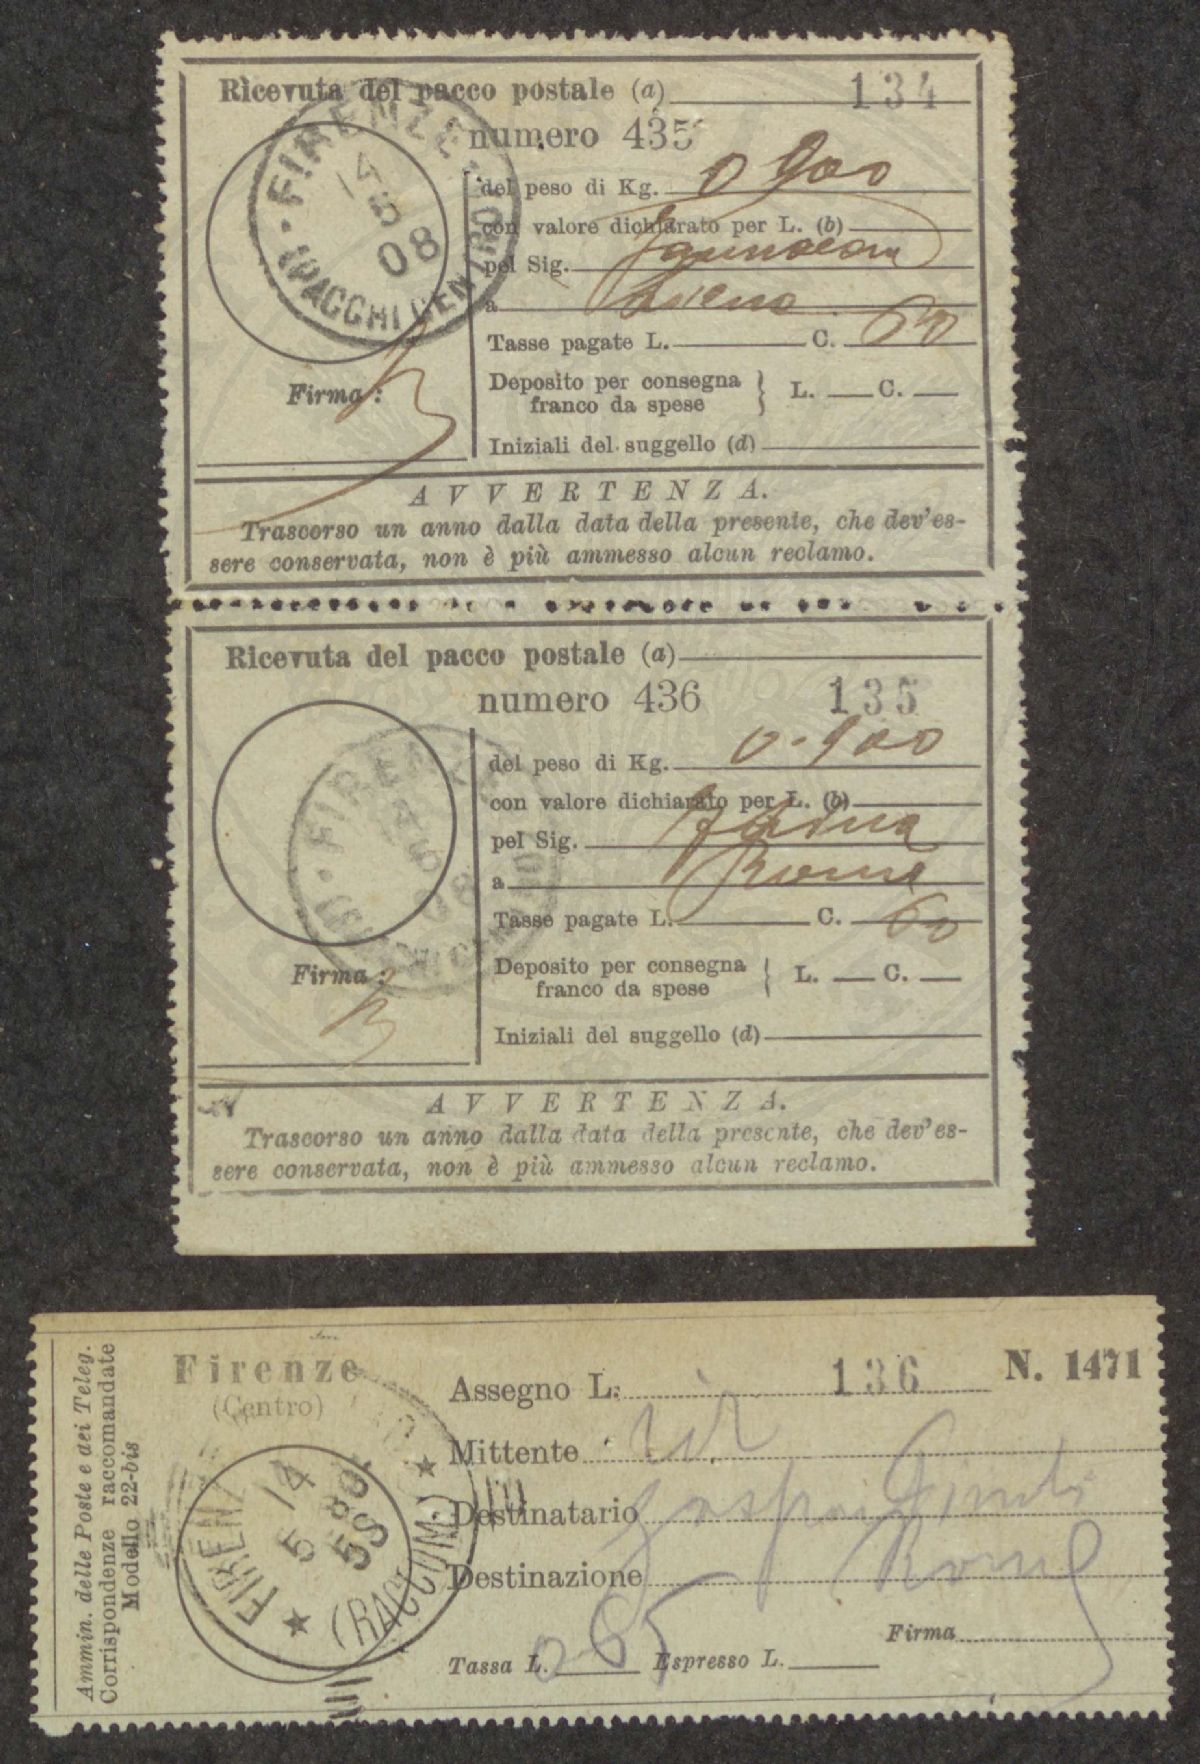 Ricevuta del pacco postale (a)
134
numero 435
FIRENZE
08
del peso di Kg. 0 900
con valore dichiarato per L. (b)
pel Sig.
a
(PACCHI CENTRO)
Tasse pagate L. C. 60
Firma:
Deposito per consegna franco da spese } L. C.
Iniziali del suggello (d)
AVVERTENZA.
Trascorso un anno dalla data della presente, che dev'es-
sere conservata, non è più ammesso alcun reclamo.
Ricevuta del pacco postale (a)
numero 436 135
FIRENZE
08
del peso di Kg. 0.900
con valore dichiarato per L. (b)
pel Sig.
a Roma
Tasse pagate L. C. 60
Firma:
Deposito per consegna franco da spese { L. C.
Iniziali del suggello (d)
AVVERTENZA.
Trascorso un anno dalla data della presente, che dev'es-
sere conservata, non è più ammesso alcun reclamo.
Ammin. delle Poste e dei Teleg.
Corrispondenze raccomandate
Modello 22-bis
Firenze
(Centro)
FIRENZE
14
5 08
5S
(RACCOM)
Assegno L. 136 N. 1471
Mittente
Destinatario
Destinazione Roma
Firma
Tassa L. 0 65 Espresso L.